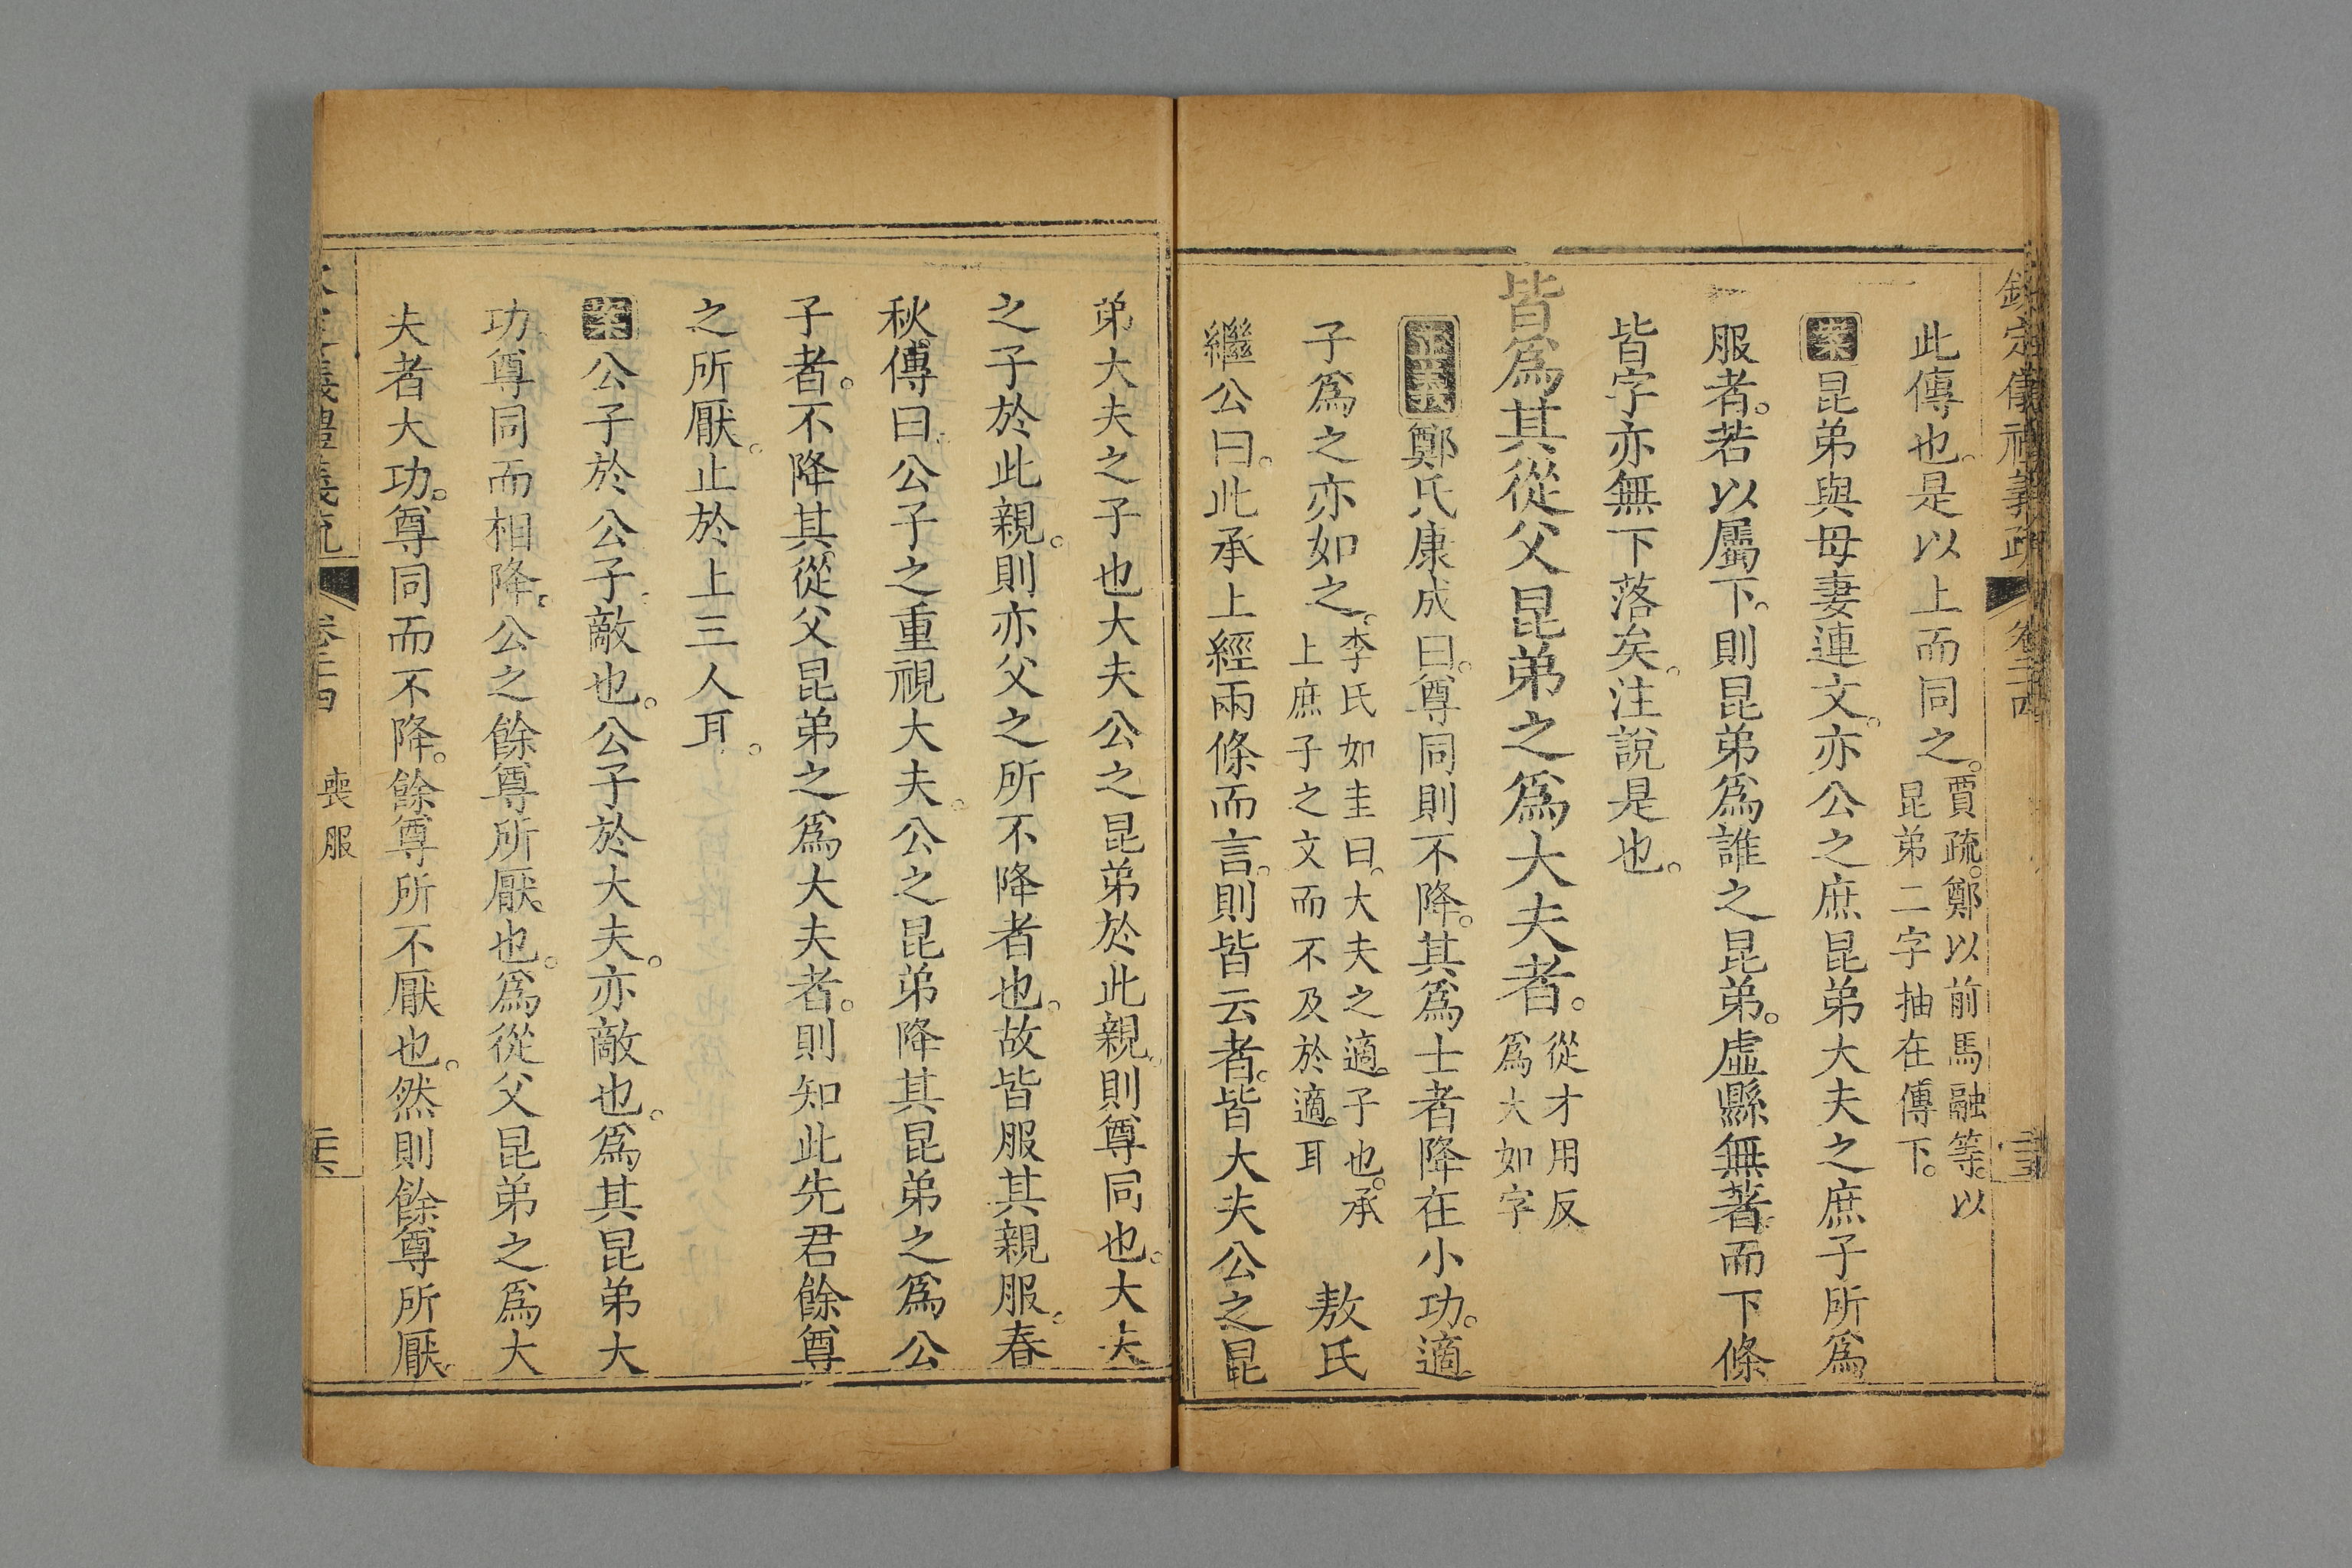 欽定儀禮義疏 卷二十四
此傳也。是以上而同之。賈疏。鄭以前馬融等。以昆弟二字抽在傳下。
案昆弟與母妻連文。亦公之庶昆弟大夫之庶子所爲
服者。若以屬下。則昆弟爲誰之昆弟。虛縣無著。而下條
皆字亦無下落矣。注說是也。
皆爲其從父昆弟之爲大夫者。從才用反爲大如字
正義鄭氏康成曰。尊同則不降。其爲士者降在小功。適
子爲之亦如之。李氏如圭曰。大夫之適子也。承上庶子之文而不及於適耳 敖氏
繼公曰。此承上經兩條而言。則皆云者。皆大夫公之昆
弟大夫之子也大夫公之昆弟於此親。則尊同也。大夫
之子於此親。則亦父之所不降者也。故皆服其親服。春
秋傳曰。公子之重視大夫。公之昆弟降其昆弟之爲公
子者。不降其從父昆弟之爲大夫者。則知此先君餘尊
之所厭。止於上三人耳。
案公子於公子敵也。公子於大夫。亦敵也。爲其昆弟大
功尊同而相降。公之餘尊所厭也。爲從父昆弟之爲大
夫者大功。尊同而不降。餘尊所不厭也。然則餘尊所厭。
儀禮義疏 卷二十四 喪服